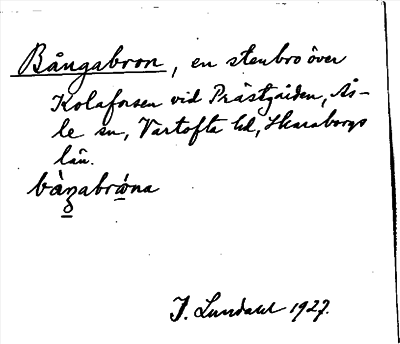 Bångabron, en stenbro över
Kolaforsen vid Prästgården, Ås-
le sn, Vartofta hd, Skaraborgs
län.
bå̀ŋabrώ̨na
J. Lundahl 1927.